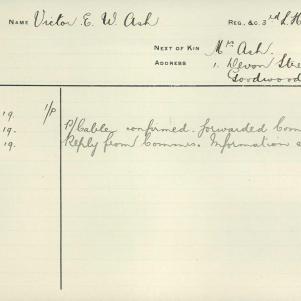 NAME Victor E. W. Ash REG. &C. 3rd L. H
NEXT OF KIN Mrs Ash.
ADDRESS 1. Devon Stre
Goodwood
19. 1/P
19. P/Cable confirmed. forwarded Com
19. Reply from Commis. Information a